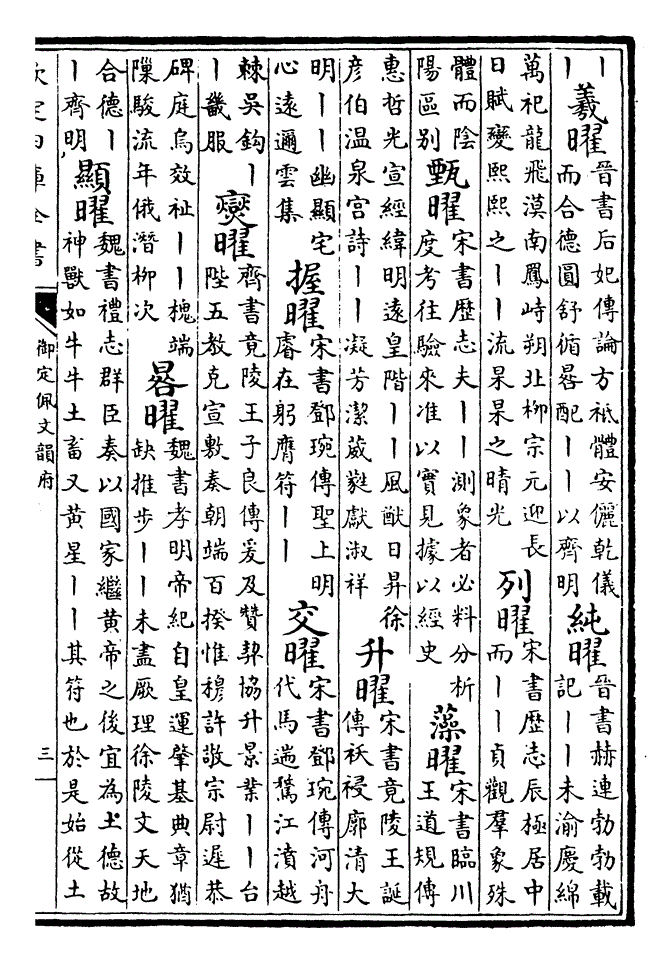 ｜
｜
羲曜
晉書后妃傳論方祗體安儷乾儀
而合德圓舒循晷配｜｜以齊明
純曜
晉書赫連勃勃載
記｜｜未渝慶綿
萬祀龍飛漠南鳳峙朔北柳宗元迎長
日賦變熙熙之｜｜流杲杲之晴光
列曜
宋書歷志辰極居中
而｜｜貞觀羣象殊
體而陰
陽區别
甄曜
宋書歷志夫｜｜測象者必料分析
度考往驗來准以實見據以經史
藻曜
宋書臨川
王道規傳
惠哲光宣經緯明遠皇階｜｜風猷日昇徐
彦伯温泉宫詩｜｜凝芳潔葳蕤獻淑祥
升曜
宋書竟陵王誕
傳袄祲廓清大
明｜｜幽顯宅
心遠邇雲集
握曜
宋書鄧琬傳聖上明
睿在躬膺符｜｜
交曜
宋書鄧琬傳河舟
代馬遄騖江濆越
棘吳鈎｜
｜畿服
爕曜
齊書竟陵王子良傳爰及贊契協升景業｜｜台
陛五教克宣敷奏朝端百揆惟穆許敬宗尉遲恭
碑庭烏效祉｜｜槐端
隟駿流年俄潛柳次
晷曜
魏書孝明帝紀自皇運肇基典章猶
缺推步｜｜未盡厥理徐陵文天地
合德｜
｜齊明
顯曜
魏書禮志群臣奏以國家繼黄帝之後宜為土德故
神獸如牛牛土畜又黄星｜｜其符也於是始從土
欽定四庫全書
御定佩文韻府
三